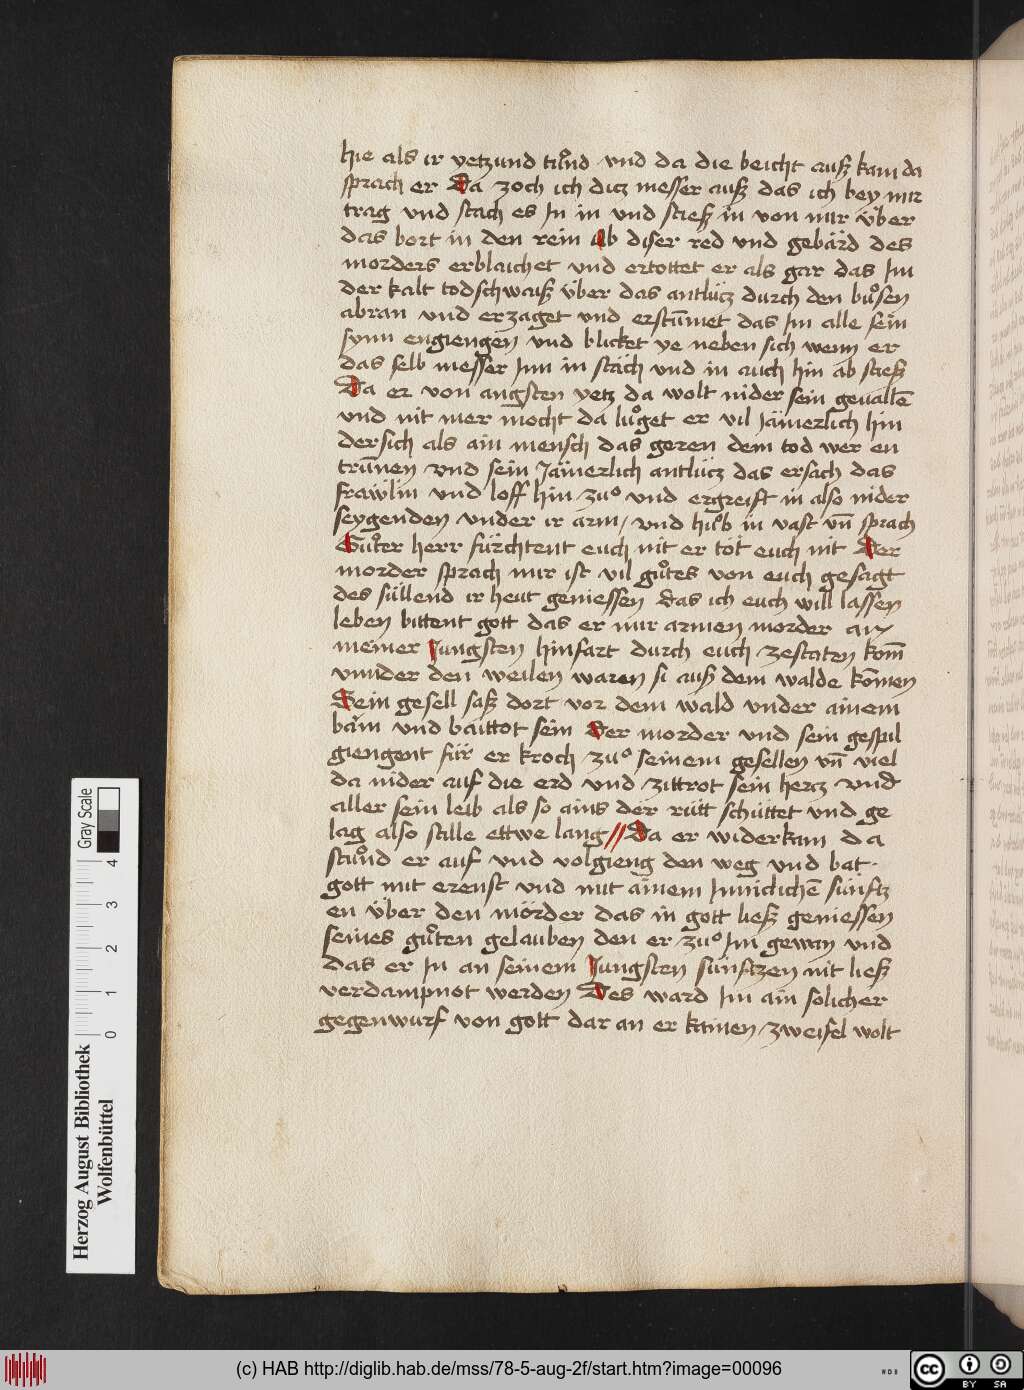 hie als ir yetzund tuͦnd vnd da die beicht auß kam da
sprach er Da zoch ich dicz messer auß das ich bey mir
trag vnd stach es In in vnd stieß in von mir über
das bort in den rein Ab diser red vnd gebärd des
morders erblaichet vnd ertottet er als gar das Im
der kalt todschwaiß über das antlücz durch den buͦsen
abran vnd erzaget vnd erstūmet das Im alle sein
synn engiengen vnd blicket ye neben sich wenn er
das selb messer Inn in stäch vnd in auch hin ab stieß
Da er von angsten yetz da wolt nider sein geuallē
vnd nit mer mocht da luͦget er vil Jämerlich hin
dersich als ain mensch das geren dem tod wer en
trūnen vnd sein Jämerlich antlücz das ersach das
fräwlin vnd loff hin zuͦ vnd ergreift in also nider
seygenden vnder ir arm / vnd huͦb in vast vn̄ sprach
Guͦter herr fürchtent euch nit er töt euch nit Der
morder sprach mir ist vil guͦtes von euch gesagt
des süllend ir heut geniessen das ich euch will lassen
leben bittent gott das er mir armen morder an
meiner Jungsten hinfart durch euch zestaten kom̄
vnnder den weilen waren si auß dem walde kōmen
Sein gesell saß dort vor dem wald vnder ainem
bäm vnd baittot sein Der morder vnd sein gespil
giengent für er kroch zuͦ seinem gesellen vn̄ viel
da nider auf die erd vnd zittrot sein hercz vnd
aller sein leib als so ains der rütt schüttet vnd ge
lag also stille ettwe lang // Da er widerkam da
stuͦnd er auf vnd volgieng den weg vnd bat
gott mit erenst vnd mit ainem Inniclichē sünftz
en über den mörder das in gott ließ geniessen
seines guͦten gelauben den er zuͦ Im gewan vnd
das er In an seinem Jungsten sünftzen nit ließ
verdampnot werden Des ward Im ain solicher
gegenwurf von gott dar an er kainen zweifel wolt
Herzog August Bibliothek
Wolfenbüttel
Gray Scale
0 1 2 3 4
(c) HAB http://diglib.hab.de/mss/78-5-aug-2f/start.htm?image=00096
WDB
cc BY SA